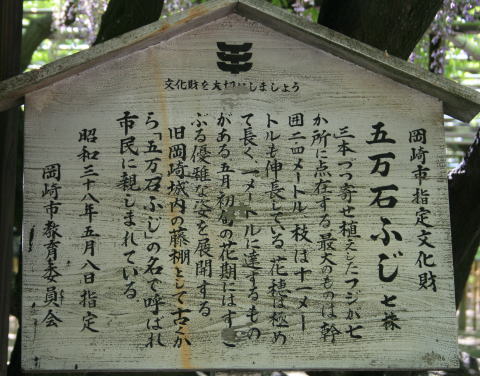 文化財を大切にしましょう
岡崎市指定文化財
五万石ふじ 七株
三本づつ寄せ植えしたフジが七
か所に点在する最大のものは幹
囲二四メートル、枝は十一メー
トルも伸長している。花穂は極め
て長く、一メートルに達するもの
がある五月初旬の花期にはす
ぶる優雅な姿を展開する
旧岡崎城内の藤棚として古か
ら「五万石ふじ」の名で呼ばれ
市民に親しまれている。
昭和三十八年五月八日指定
岡崎市教育委員会